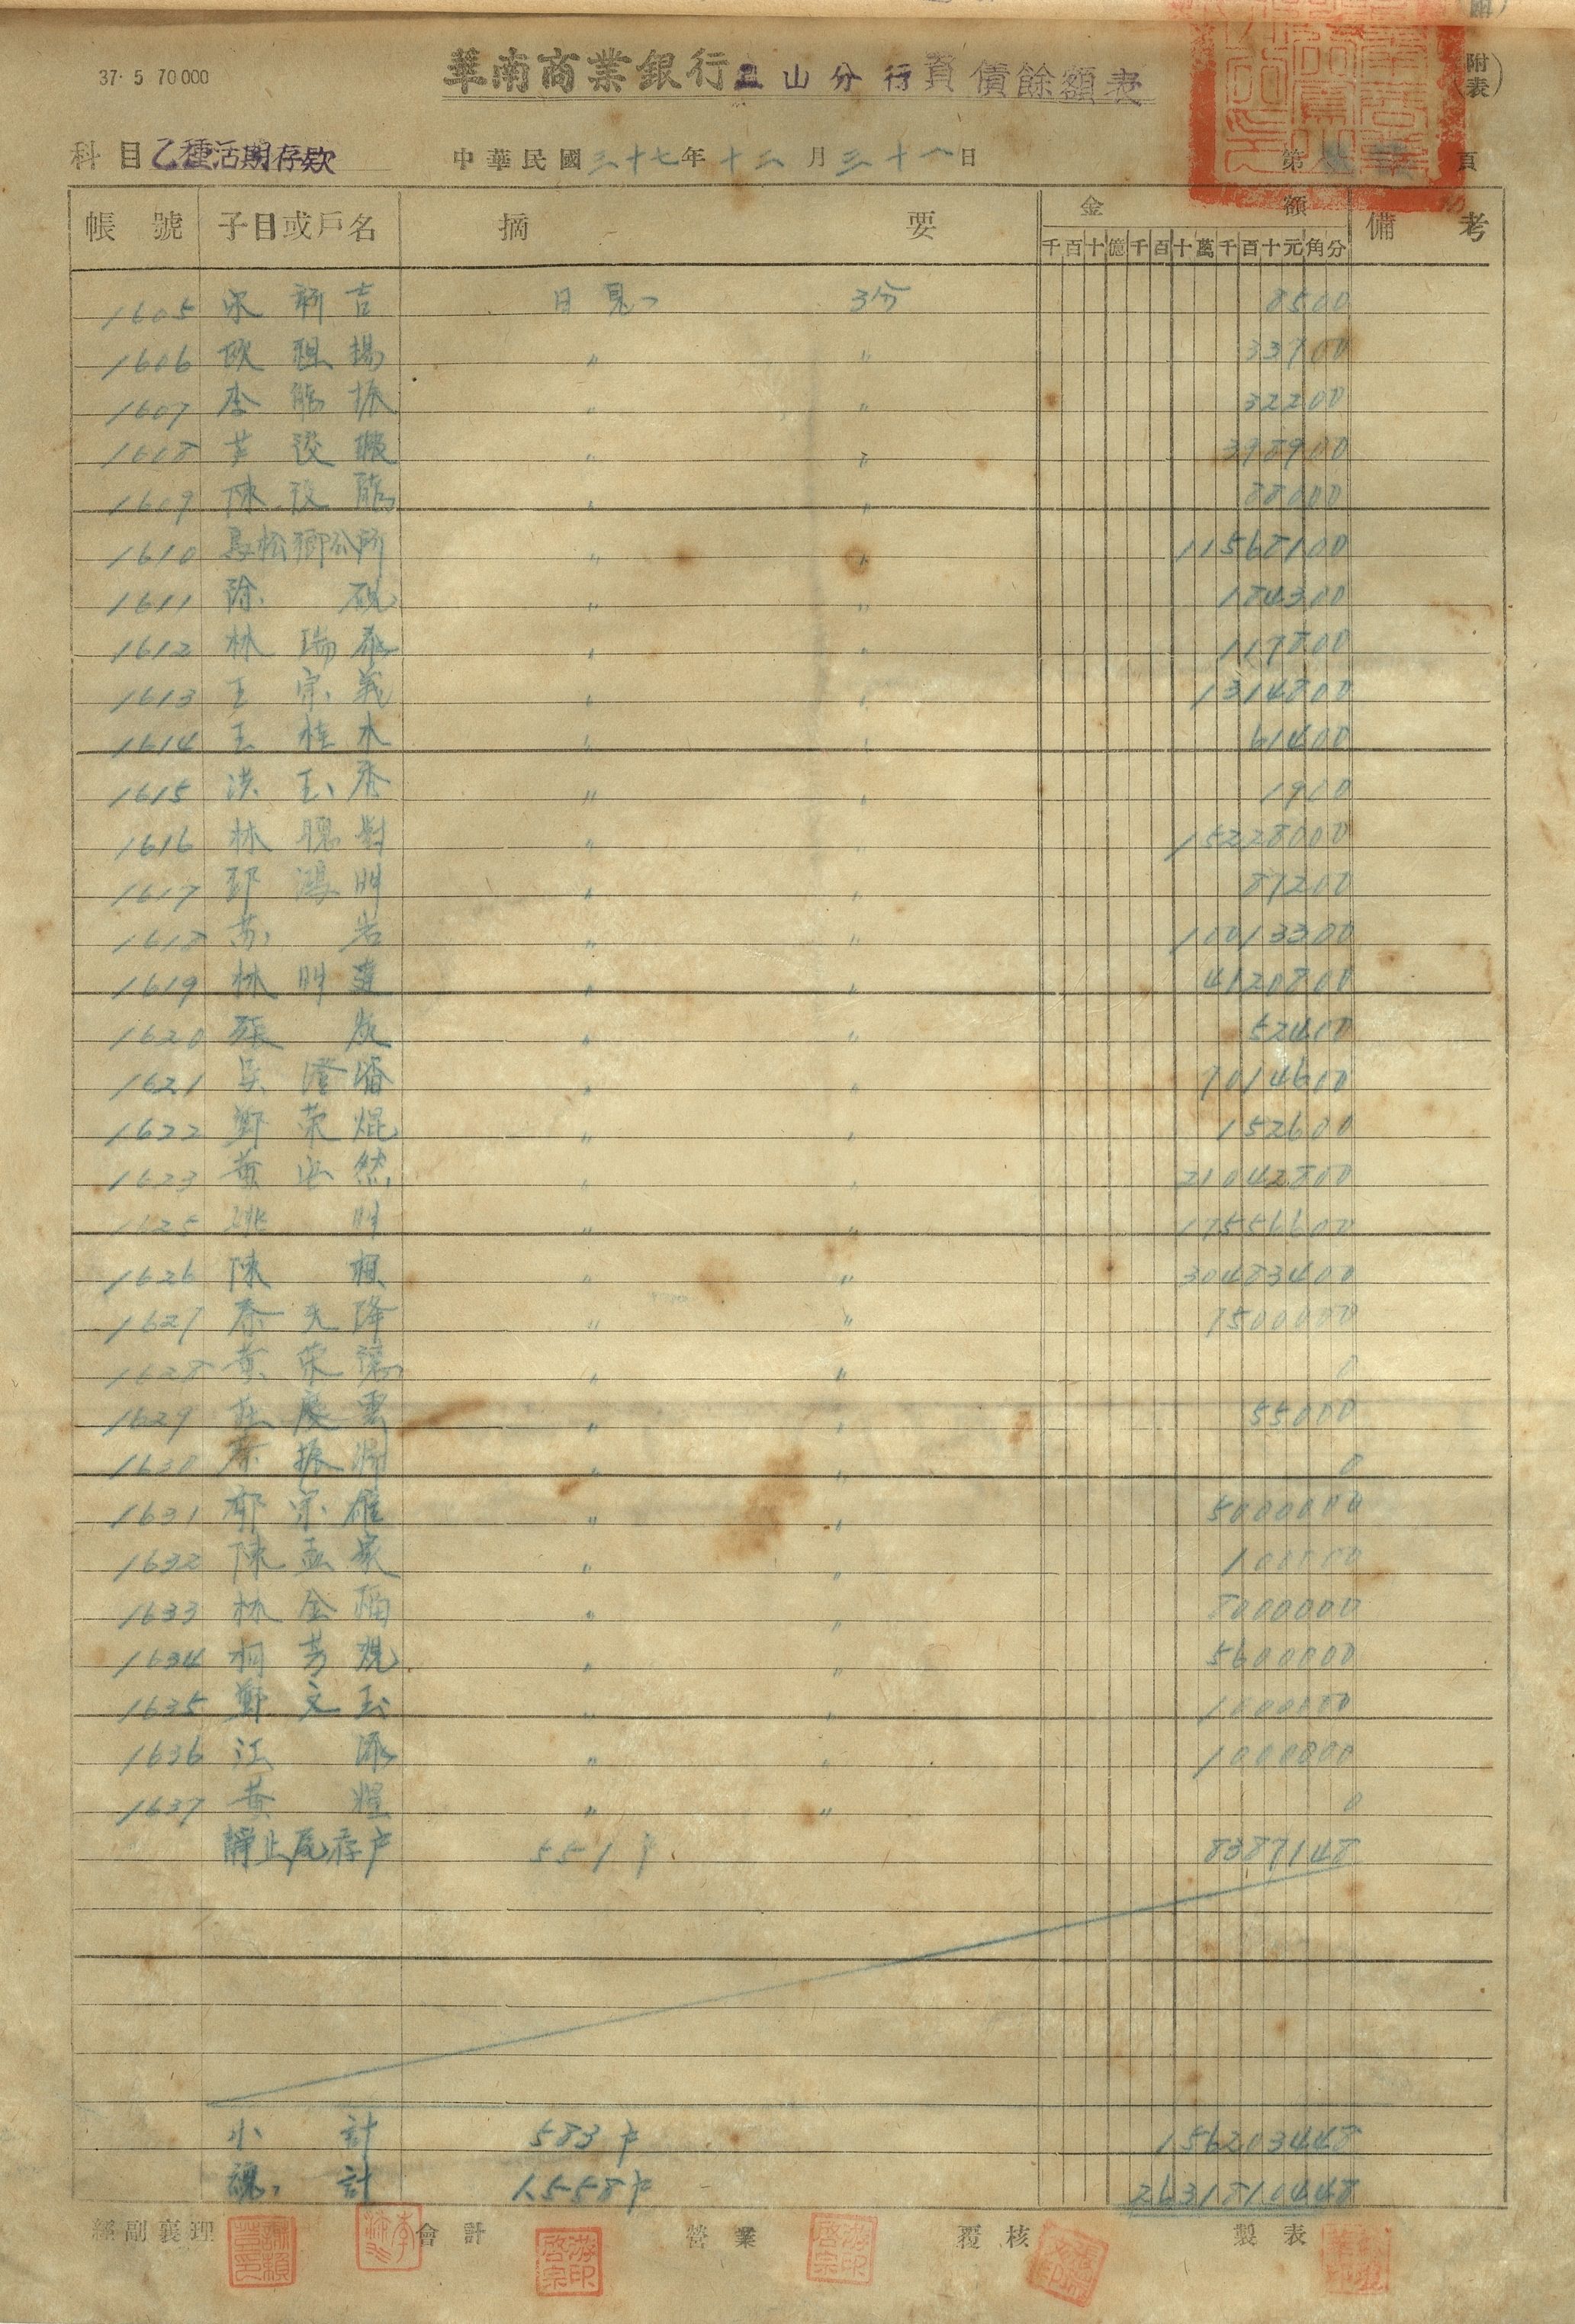 37. 5 70000
附表)
華南商業銀行 山分行資債餘額表
科目 乙種活期存欵 中華民國三十七年十二月三十一日 第 頁
帳號 子目或戶名 摘要 金額 備考
千百十億千百十萬千百十元角分
1605 宋新吉 日息 3分 8500
1606 欧祖揚 〃 〃 33700
1607 李能振 〃 〃 32200
1608 〃 〃 398900
1609 陳 〃 〃 88000
1610 鳥松鄉公所 〃 〃 11568100
1611 徐硯 〃 〃 184300
1612 林瑞泰 〃 〃 117800
1613 王宗義 〃 〃 1314800
1614 王桂木 〃 〃 61400
1615 洪玉香 〃 〃 1900
1616 林聰 〃 〃 15228000
1617 鄧鴻明 〃 〃 87200
1618 岩 〃 〃 10013300
1619 林明 〃 〃 4120800
1620 張 〃 〃 52400
1621 吳澄 〃 〃 7014600
1622 鄭荣焜 〃 〃 152600
1623 黃 然 〃 〃 21042800
1625 姚明 〃 〃 17556600
1626 陳 〃 〃 30483400
1627 泰先降 〃 〃 1500000
1628 黃荣 〃 〃 0
1629 莊慶雲 〃 〃 55000
1630 蔡振 〃 〃 0
1631 郭宗雄 〃 〃 5000000
1632 陳孟家 〃 〃 100000
1633 林金 〃 〃 8000000
1634 芳 〃 〃 5600000
1635 鄭文玉 〃 〃 1000000
1636 江 〃 〃 1000000
1637 黃煌 〃 〃 0
靜止尾存户 551户 8387148
小計 583户 156203448
總計 1558户 2631810448
經副襄理 會計 營業 覆核 製表